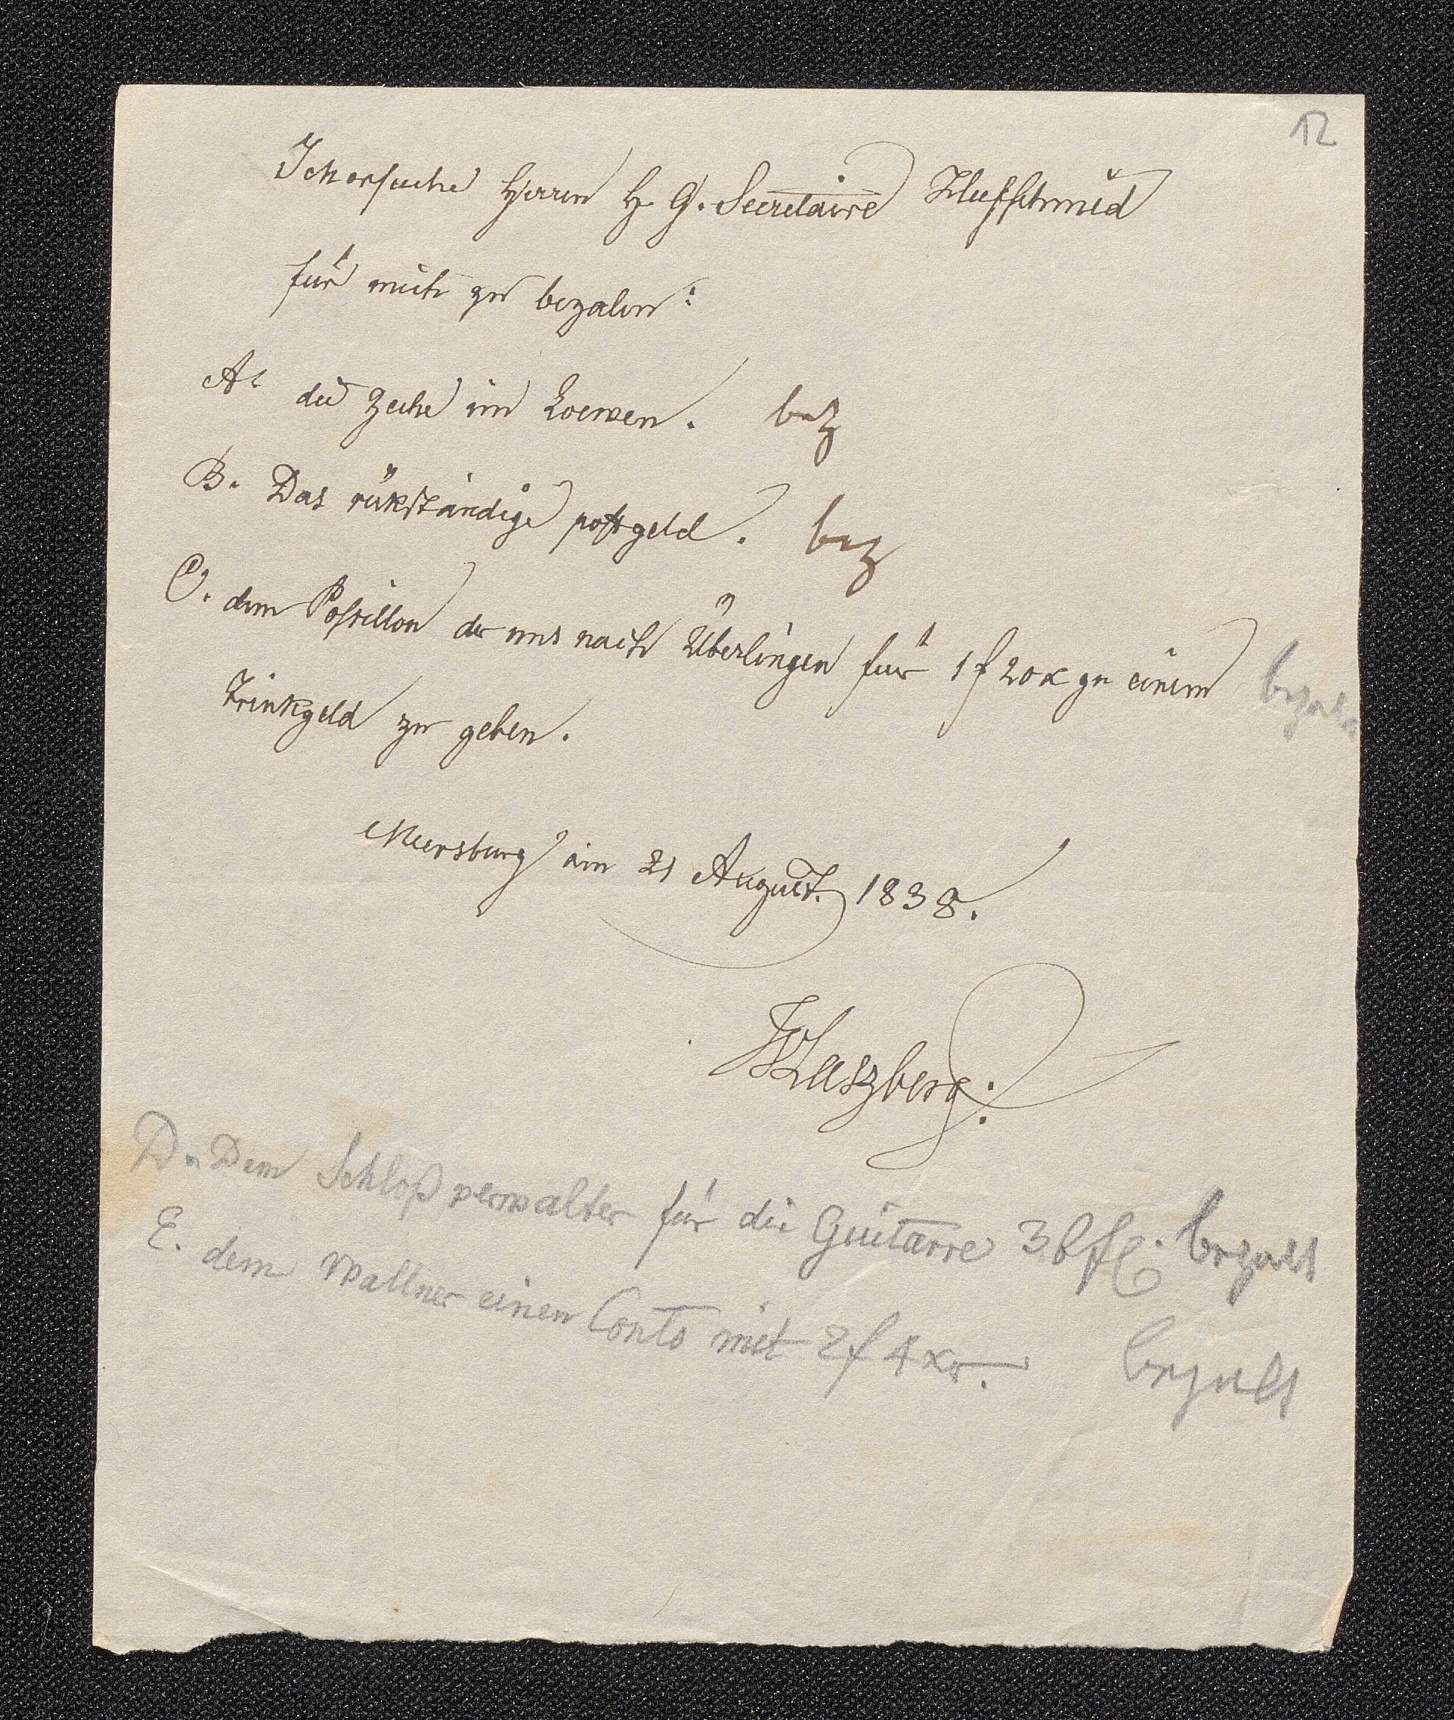 12
Ich ersuche Herrn H. G. Secretaire Hufschmid
für mich zu bezalen:
A. die Zeche im Loewen. bez
B. Das rükständige postgeld. bez
C. dem Postillon der uns nach Überlingen für 1 f 20 x zu einem bezalt
Trinkgeld zu geben.
Meersburg am 21 August. 1838.
JvLaszberg.
D. Dem Schloß verwalter für die Guitarre 36 fl. bezalt
E. dem Wallner einen Conto mit 2 f 4 xr. bezalt